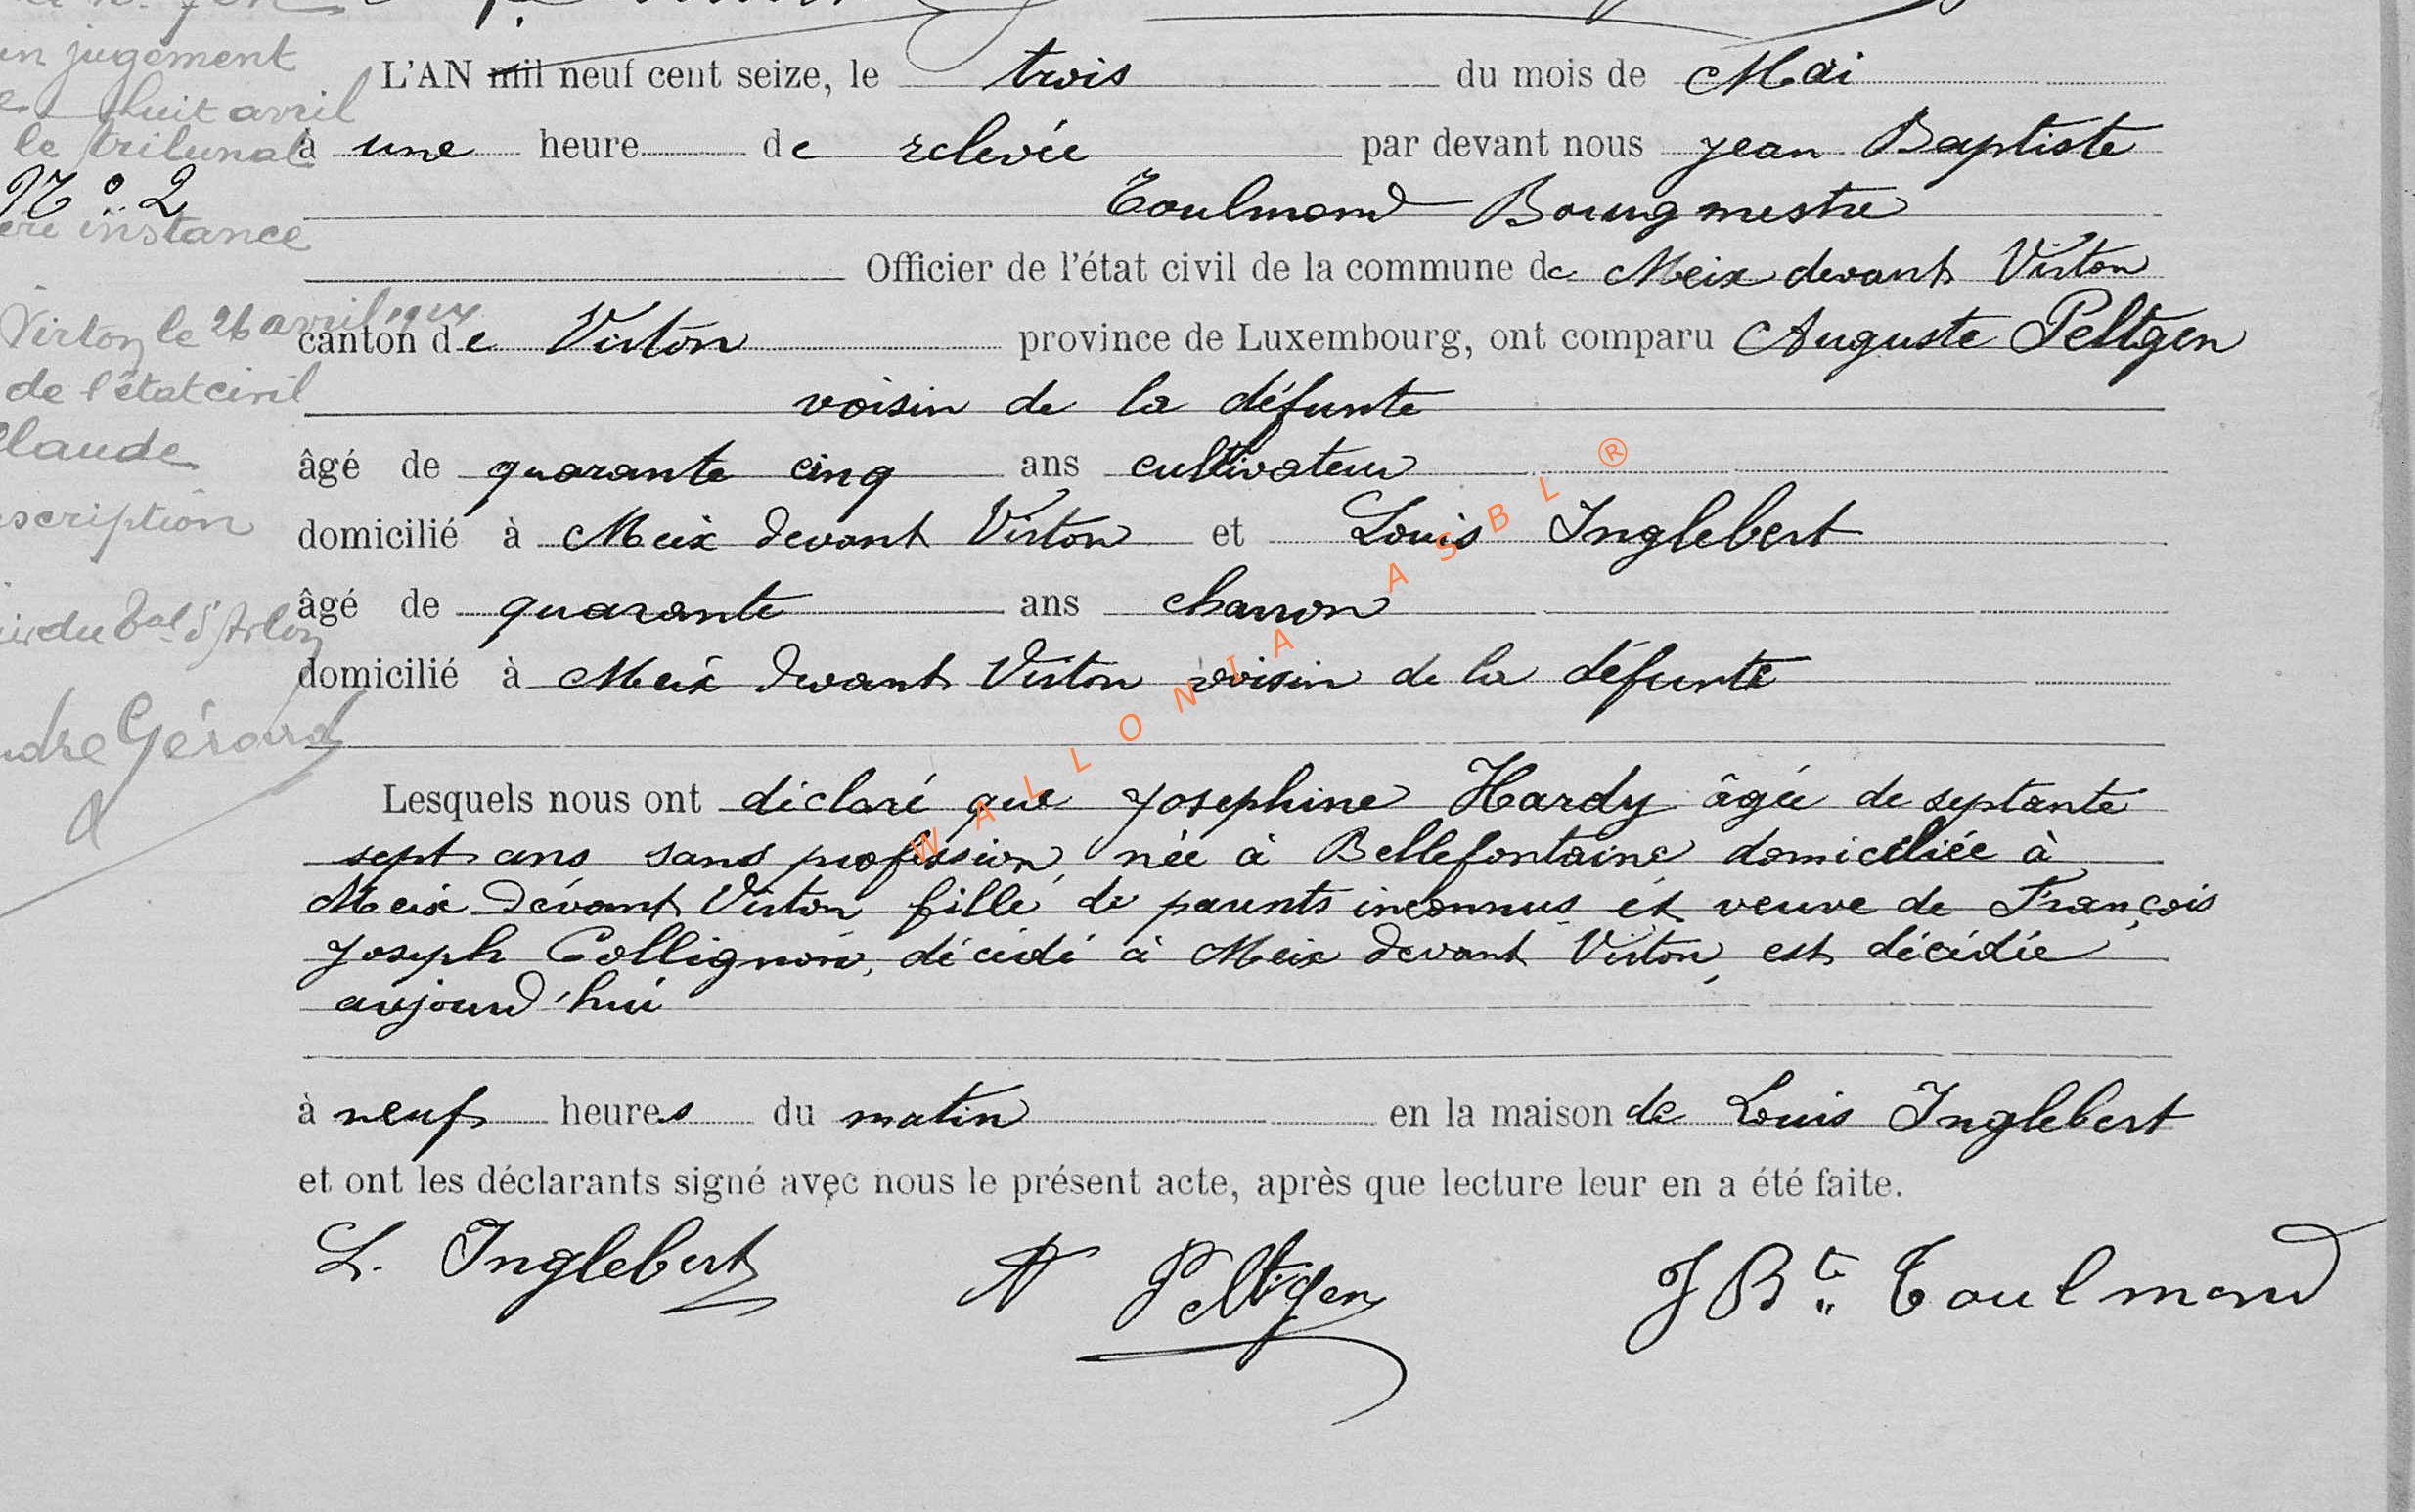 un jugement
huit avril
le tribunal
N° 2
instance
Virton le 26 avril
de l'état civil
Claude
du Bal d'Arlon
Gérard
L'AN mil neuf cent seize, le trois du mois de Mai
à une heure de relevée par devant nous Jean Baptiste
Toulmond Bourgmestre
Officier de l'état civil de la commune de Meix devant Virton
canton de Virton province de Luxembourg, ont comparu Auguste Peltgen
voisin de la défunte
âgé de quarante cinq ans cultivateur
domicilié à Meix devant Virton et Louis Inglebert
âgé de quarante ans charron
domicilié à Meix devant Virton voisin de la défunte
Lesquels nous ont déclaré que Josephine Hardy âgée de septante
sept ans sans profession, née à Bellefontaine, domiciliée à
Meix devant Virton fille de parents inconnus et veuve de François
Joseph Collignon, décédé à Meix devant Virton, est décédée
aujourd'hui
à neuf heures du matin en la maison de Louis Inglebert
et ont les déclarants signé avec nous le présent acte, après que lecture leur en a été faite.
L. Inglebert A Peltgen J Bte Toulmond
WALLONIA ASBL ®